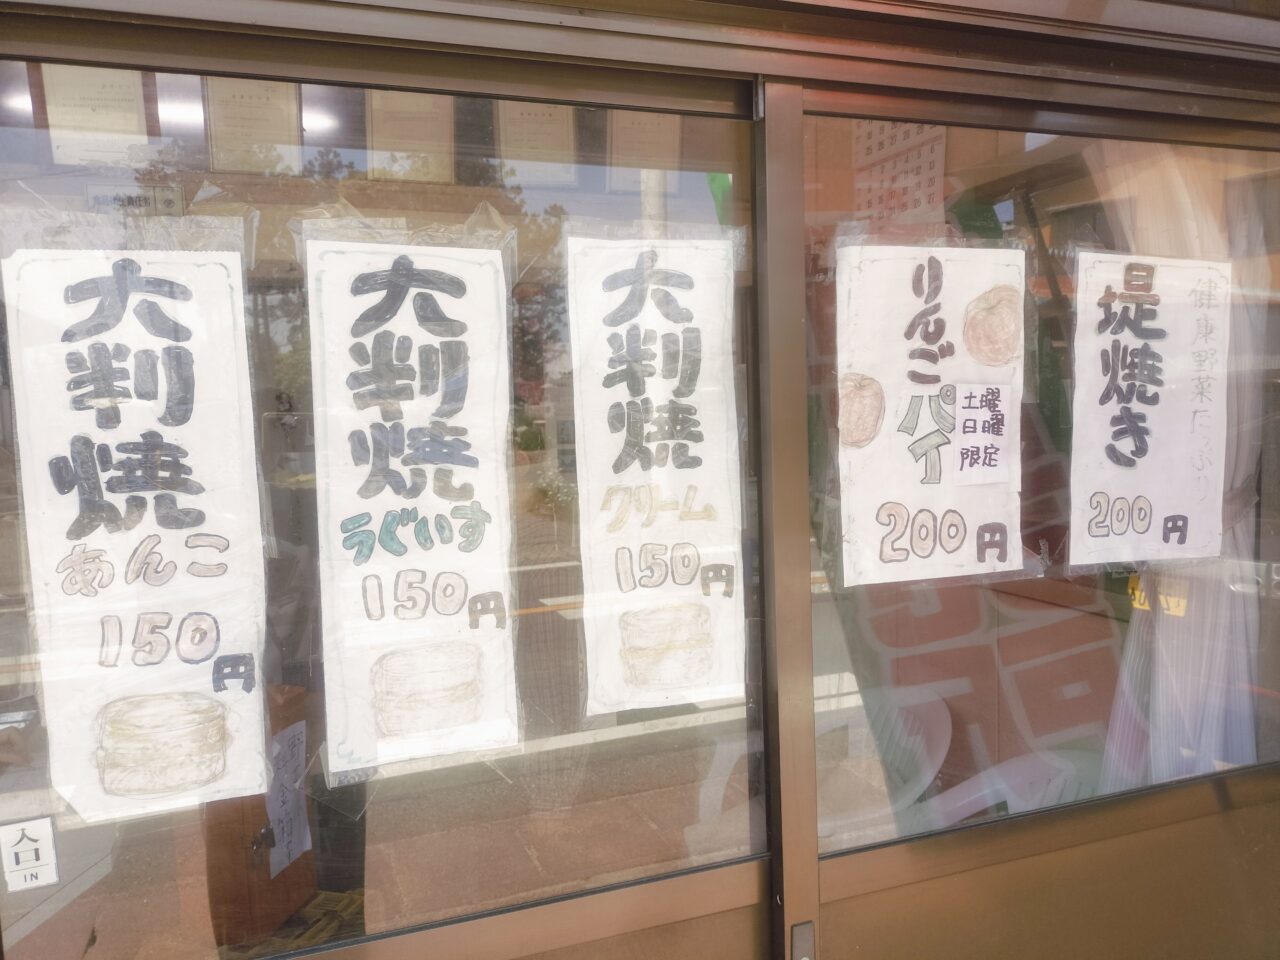 大判焼
あんこ
150円
大判焼
うぐいす
150円
大判焼
クリーム
150円
りんごパイ
土曜
日曜
限定
200円
健康野菜たっぷり
堤焼き
200円
入口
IN